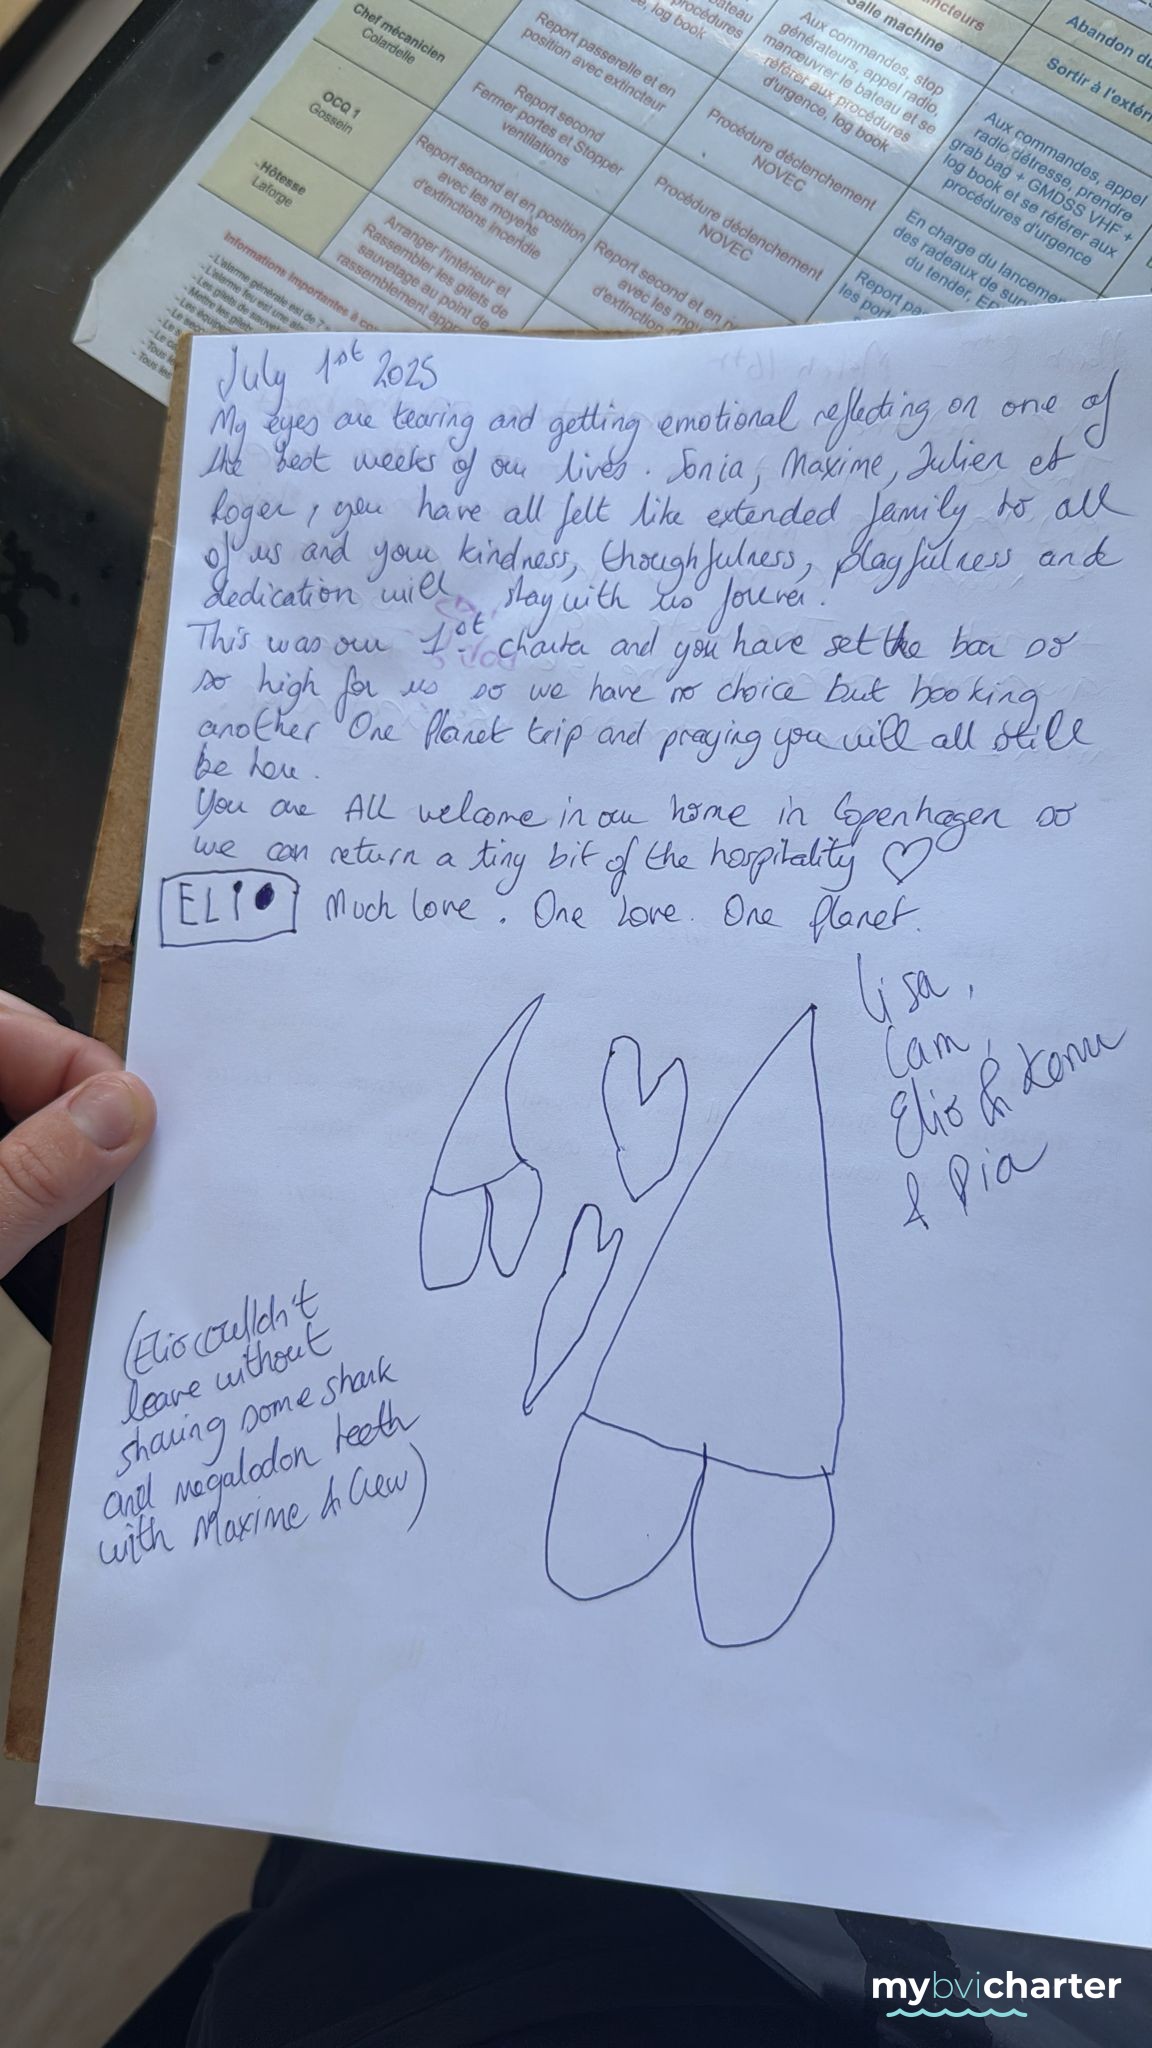 Chef mécanicien
Colardelle
Report passerelle et en
position avec extincteur
log book
Aux commandes, stop
générateurs, appel radio,
manœuvrer le bateau et se
référer aux procédures
d'urgence, log book
Salle machine
Abandon du
Sortir à l'extéri
OCQ 1
Gossein
Report second
Fermer portes et Stopper
ventilations
Procédure déclenchement
NOVEC
Aux commandes, appel
radio détresse, prendre
grab bag + GMDSS VHF +
log book et se référer aux
procédures d'urgence
Hôtesse
Laforge
Report second et en position
avec les moyens
d'extinctions incendie
Procédure déclenchement
NOVEC
En charge du lancemen
des radeaux de surv
du tender, EP
Arranger l'intérieur et
Rassembler les gilets de
sauvetage au point de
rassemblement
Report second et en
avec les moy
d'extinction
Report pa
les port
Informations importantes à
July 1st 2025
My eyes are tearing and getting emotional reflecting on one of
the best weeks of our lives. Sonia, Maxime, Julien et
Roger, you have all felt like extended family to all
of us and your kindness, thoughfulness, playfulness and
dedication will stay with us forever.
This was our 1st charter and you have set the bar so
so high for us so we have no choice but booking
another One Planet trip and praying you will all still
be here.
You are ALL welcome in our home in Copenhagen so
we can return a tiny bit of the hospitality ♡
ELIO Much love. One Love. One Planet.
Lisa,
Cam,
Elio &
& Pia
(Elio couldn't
leave without
sharing some shark
and megalodon teeth
with Maxime & Crew)
mybvicharter